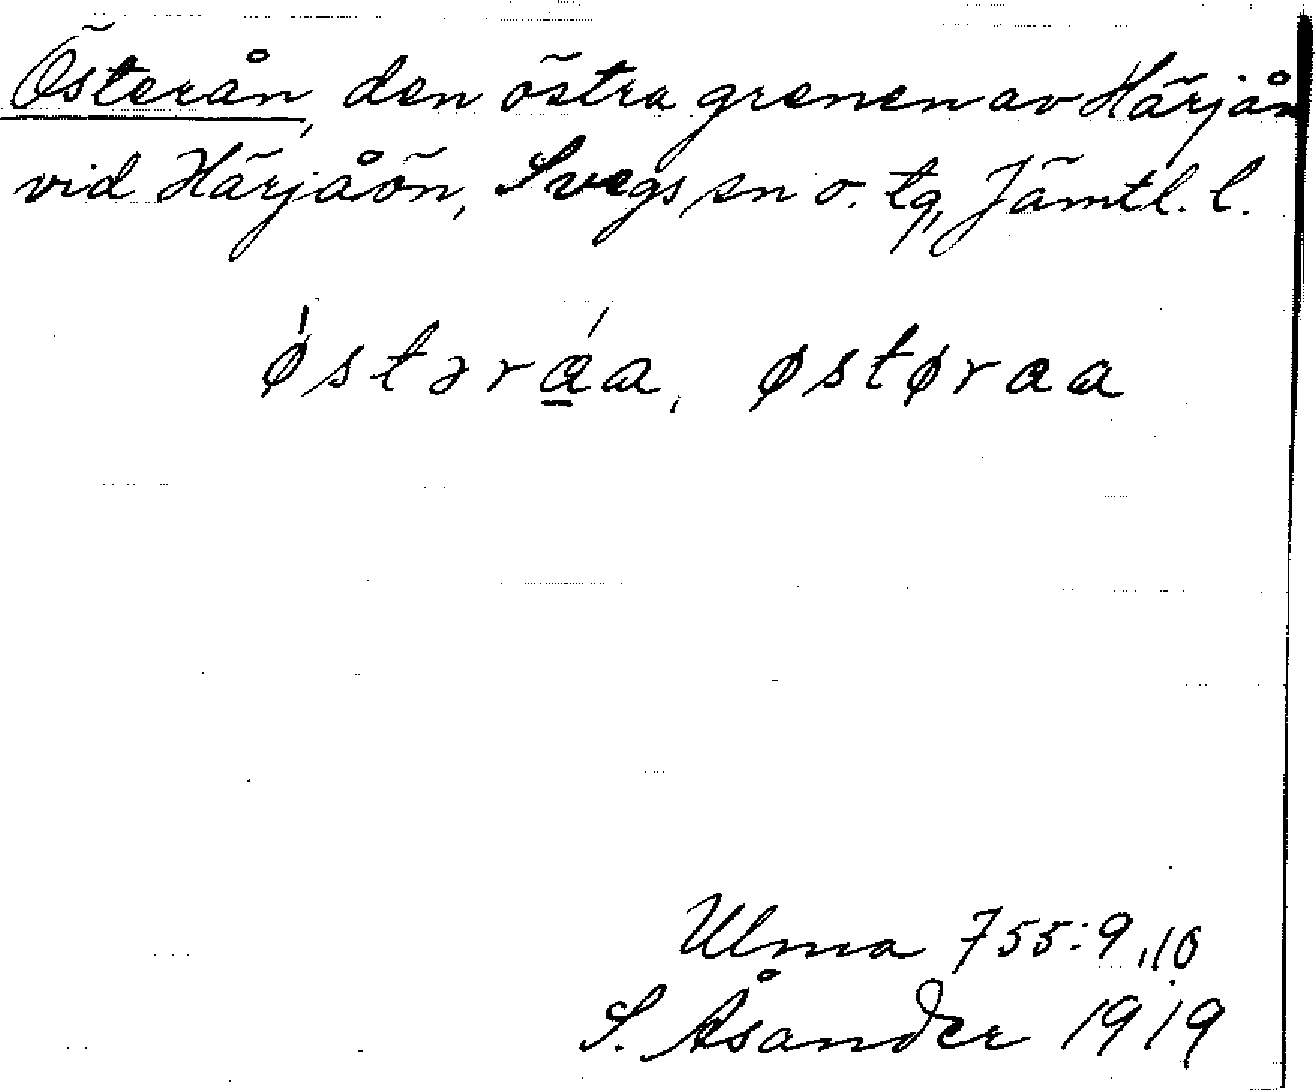 Österån, den östra grenen av Härjån
vid Härjåön, Svegs sn o. tg, Jämtl. l.
ǿstərǽa, østøraa
Ulma 755:9,10
S. Åsander 1919